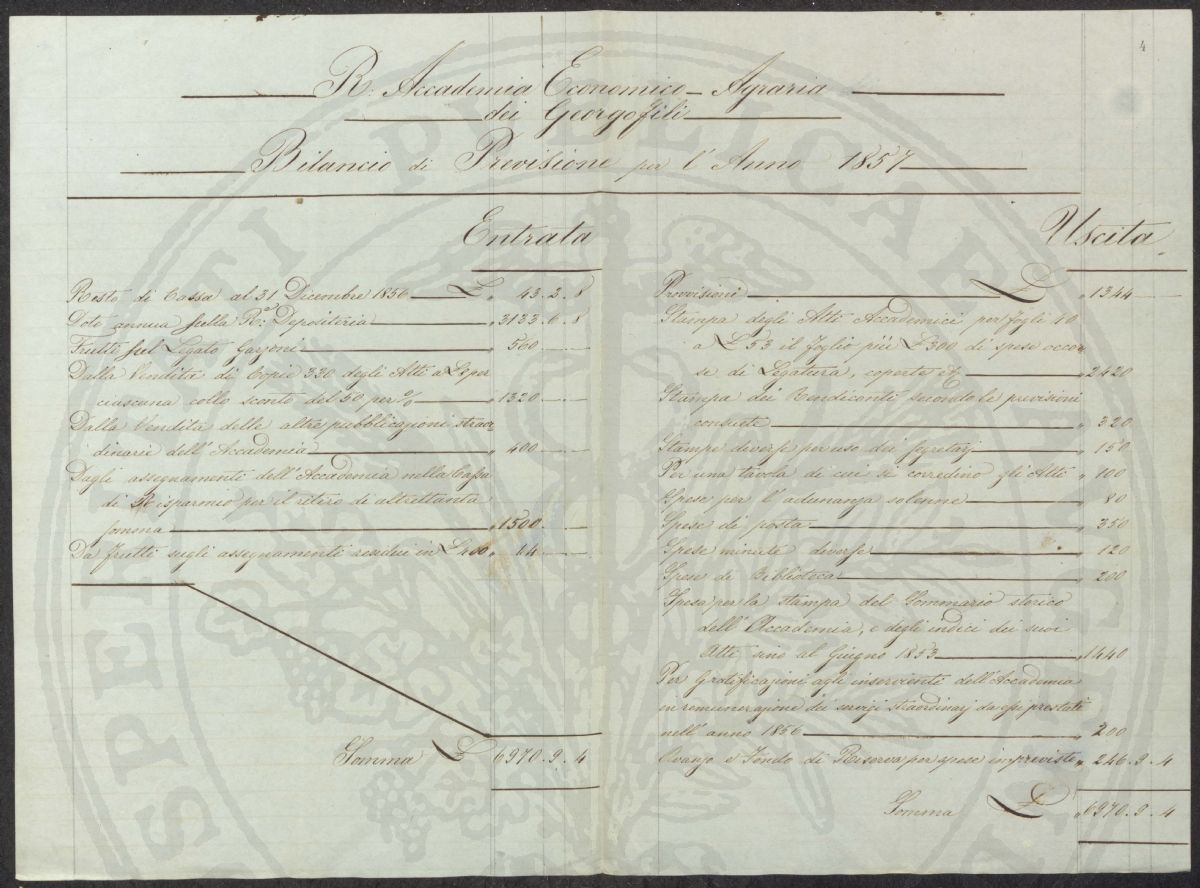 4
R. Accademia Economico-Agraria
dei Georgofili
Bilancio di Previsione per l'Anno 1857
Entrata
Resto di Cassa al 31 Dicembre 1856 £ 43.2.8
Dote annua sulla Ra: Depositeria " 3133.6.8
Frutti sul Legato Garzoni " 560
Dalla Vendita di Copie 330 degli Atti a £8 per
ciascuna collo sconto del 50 per % " 1320
Dalla Vendita delle altre pubblicazioni straor
dinarie dell'Accademia " 400
Dagli assegnamenti dell'Accademia nella Cassa
di Risparmio per il retiro di altrettanta
somma " 1500
Da frutti sugli assegnamenti residui in £ 400 " 14
Somma £ 6970.9.4
Uscita
Provvisioni £ " 1344
Stampa degli Atti Accademici per fogli 40
a £ 53 il foglio più £ 300 di spese occor
se di Legatura, coperte &c " 2420
Stampa dei Rendiconti secondo le previsioni
consuete " 320
Stampe diverse per uso dei Segretarj " 150
Per una tavola di cui si corredino gli Atti " 100
Spese per l'adunanza solenne " 80
Spese di posta " 350
Spese minute diverse " 120
Spese di Biblioteca " 200
Spesa per la stampa del Sommario storico
dell'Accademia, e degli indici dei suoi
Atti sino al Giugno 1853 " 1440
Per Gratificazioni agli inservienti dell'Accademia
in remunerazione dei servigi straordinarj da essi prestati
nell'anno 1856 " 200
Avanzo e Fondo di Riserva per spese impreviste " 246.9.4
Somma £ " 6970.9.4